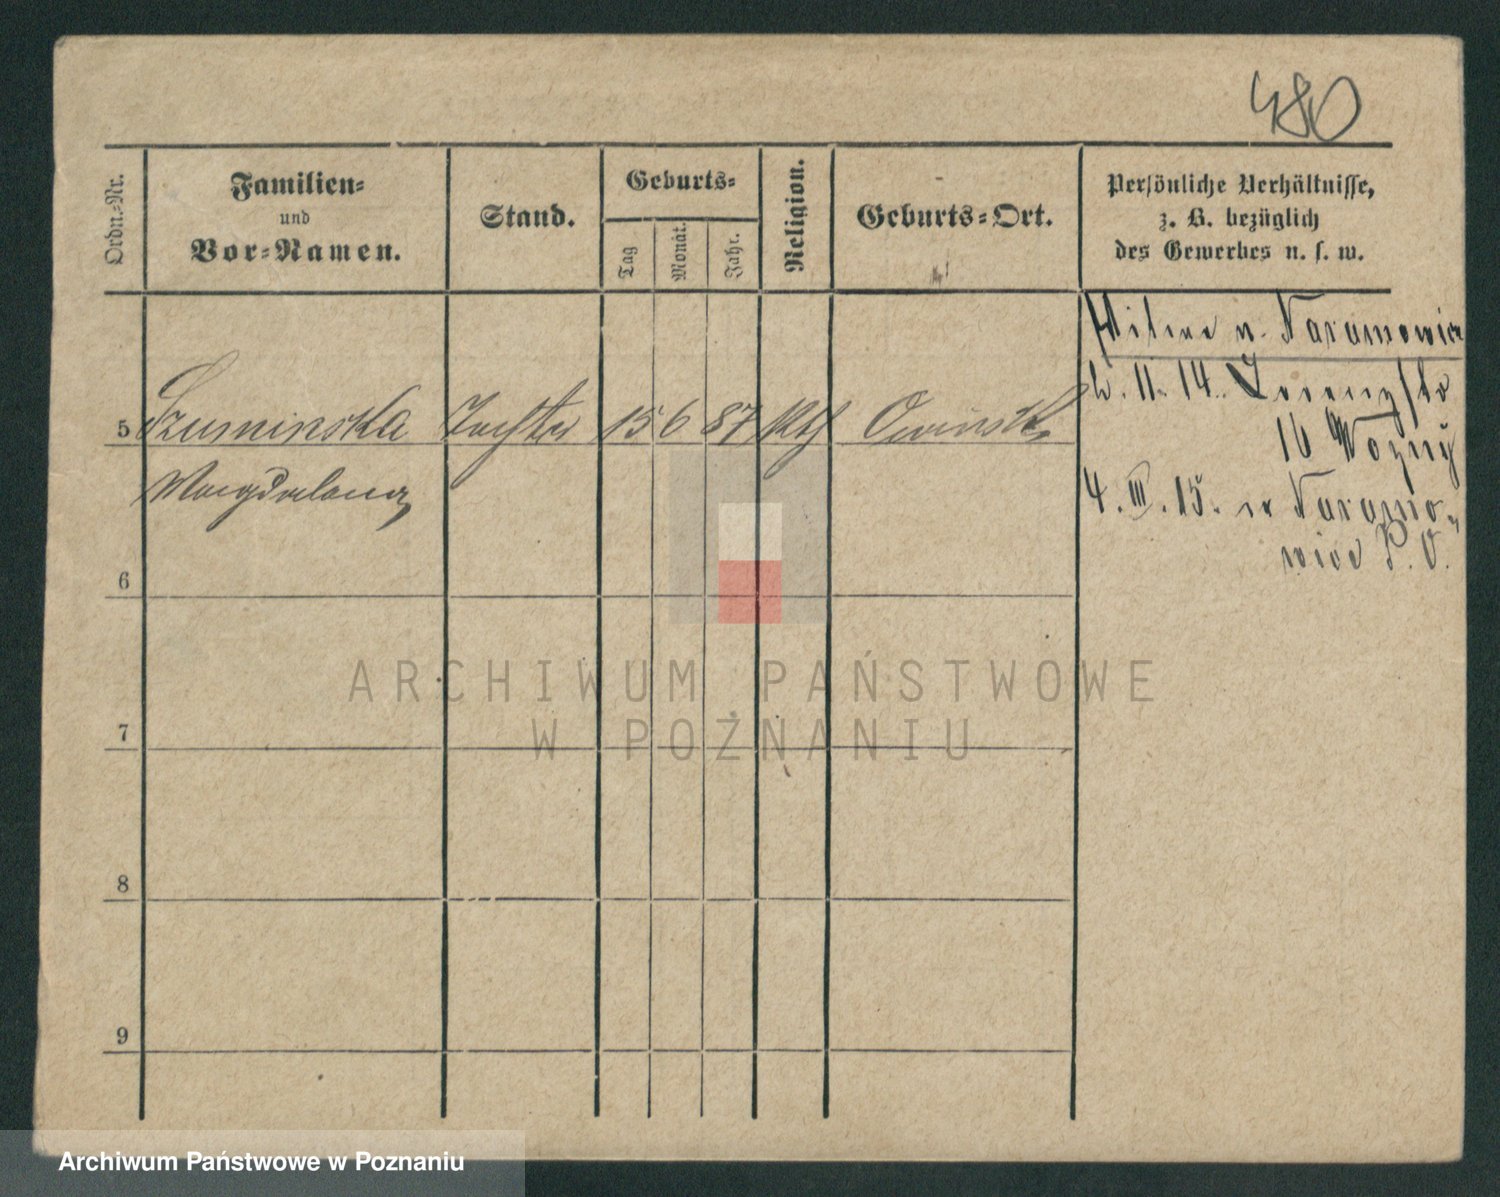 480
Ordn.-Nr.
Familien-
und
Vor-Namen.
Stand.
Geburts-
Tag
Monat.
Jahr.
Religion.
Geburts-Ort.
Persönliche Verhältnisse,
z. B. bezüglich
des Gewerbes u. s. w.
n. Naramowice
5 Szuminska Tochter 15 6 87 kth Owinsk
Magdalena
2. 11. 14. Lorenzstr
16 Wozny
4. III. 15. n Naramo-
wice P. O.
6
7
8
9
ARCHIWUM PAŃSTWOWE
W POZNANIU
Archiwum Państwowe w Poznaniu